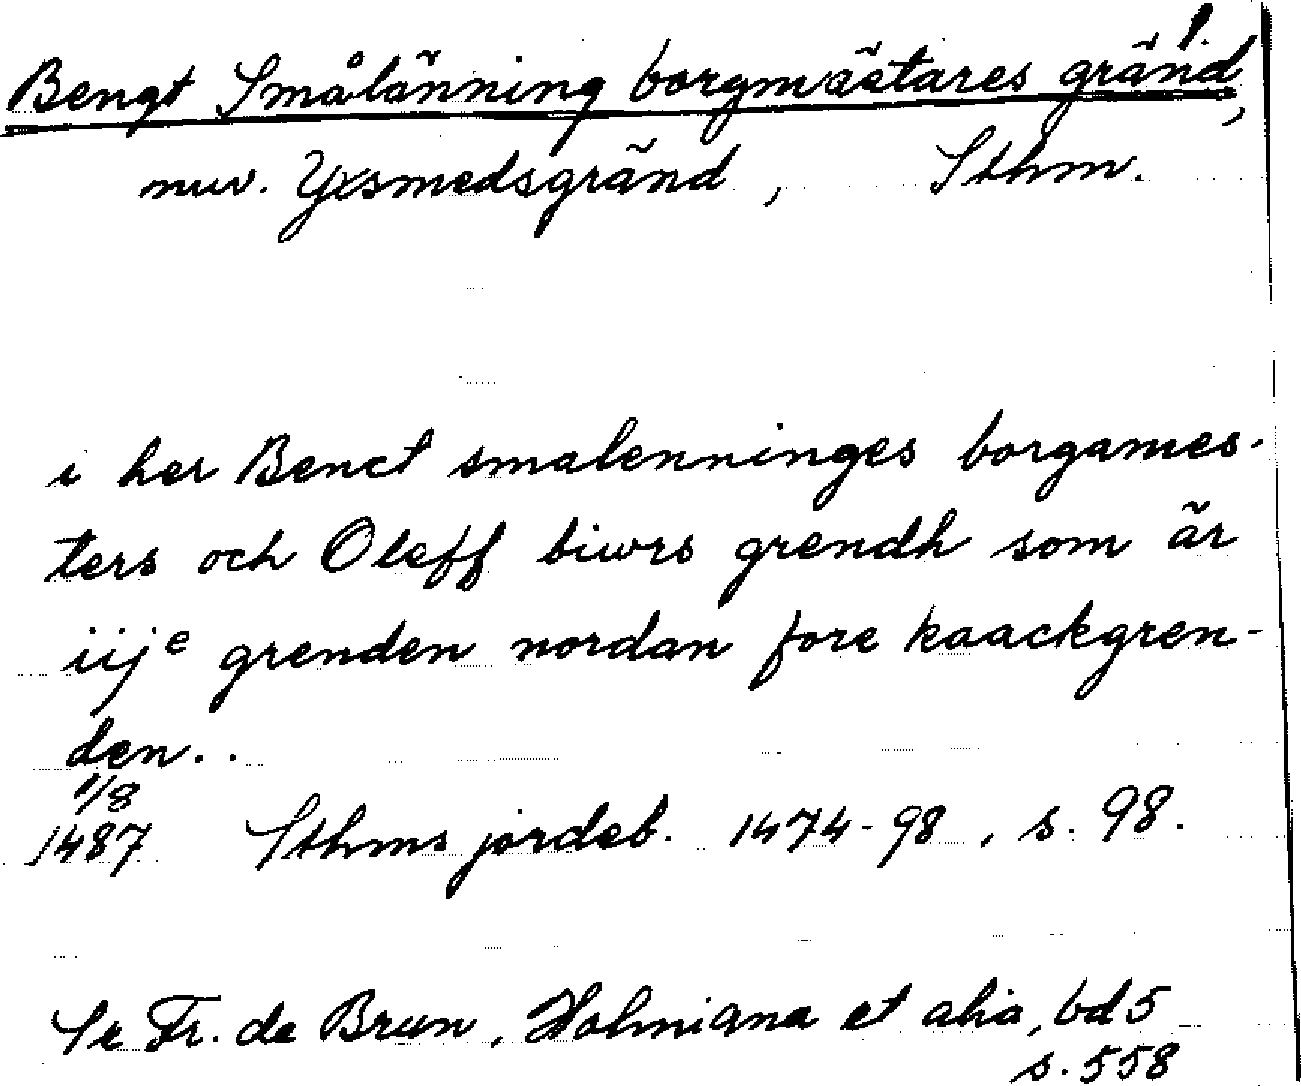 1.
Bengt Smålänning borgmästares gränd,
nuv. Yxsmedsgränd, Sthm.
i her Benct smalenninges borgames-
ters och Oleff biwrs grendh som är
iije grenden nordan fore kaackgren-
den..
1/8
1487 Sthms jordeb. 1474-98, s. 98.
Se Fr. de Brun, Holmiana et alia, bd 5
s. 558